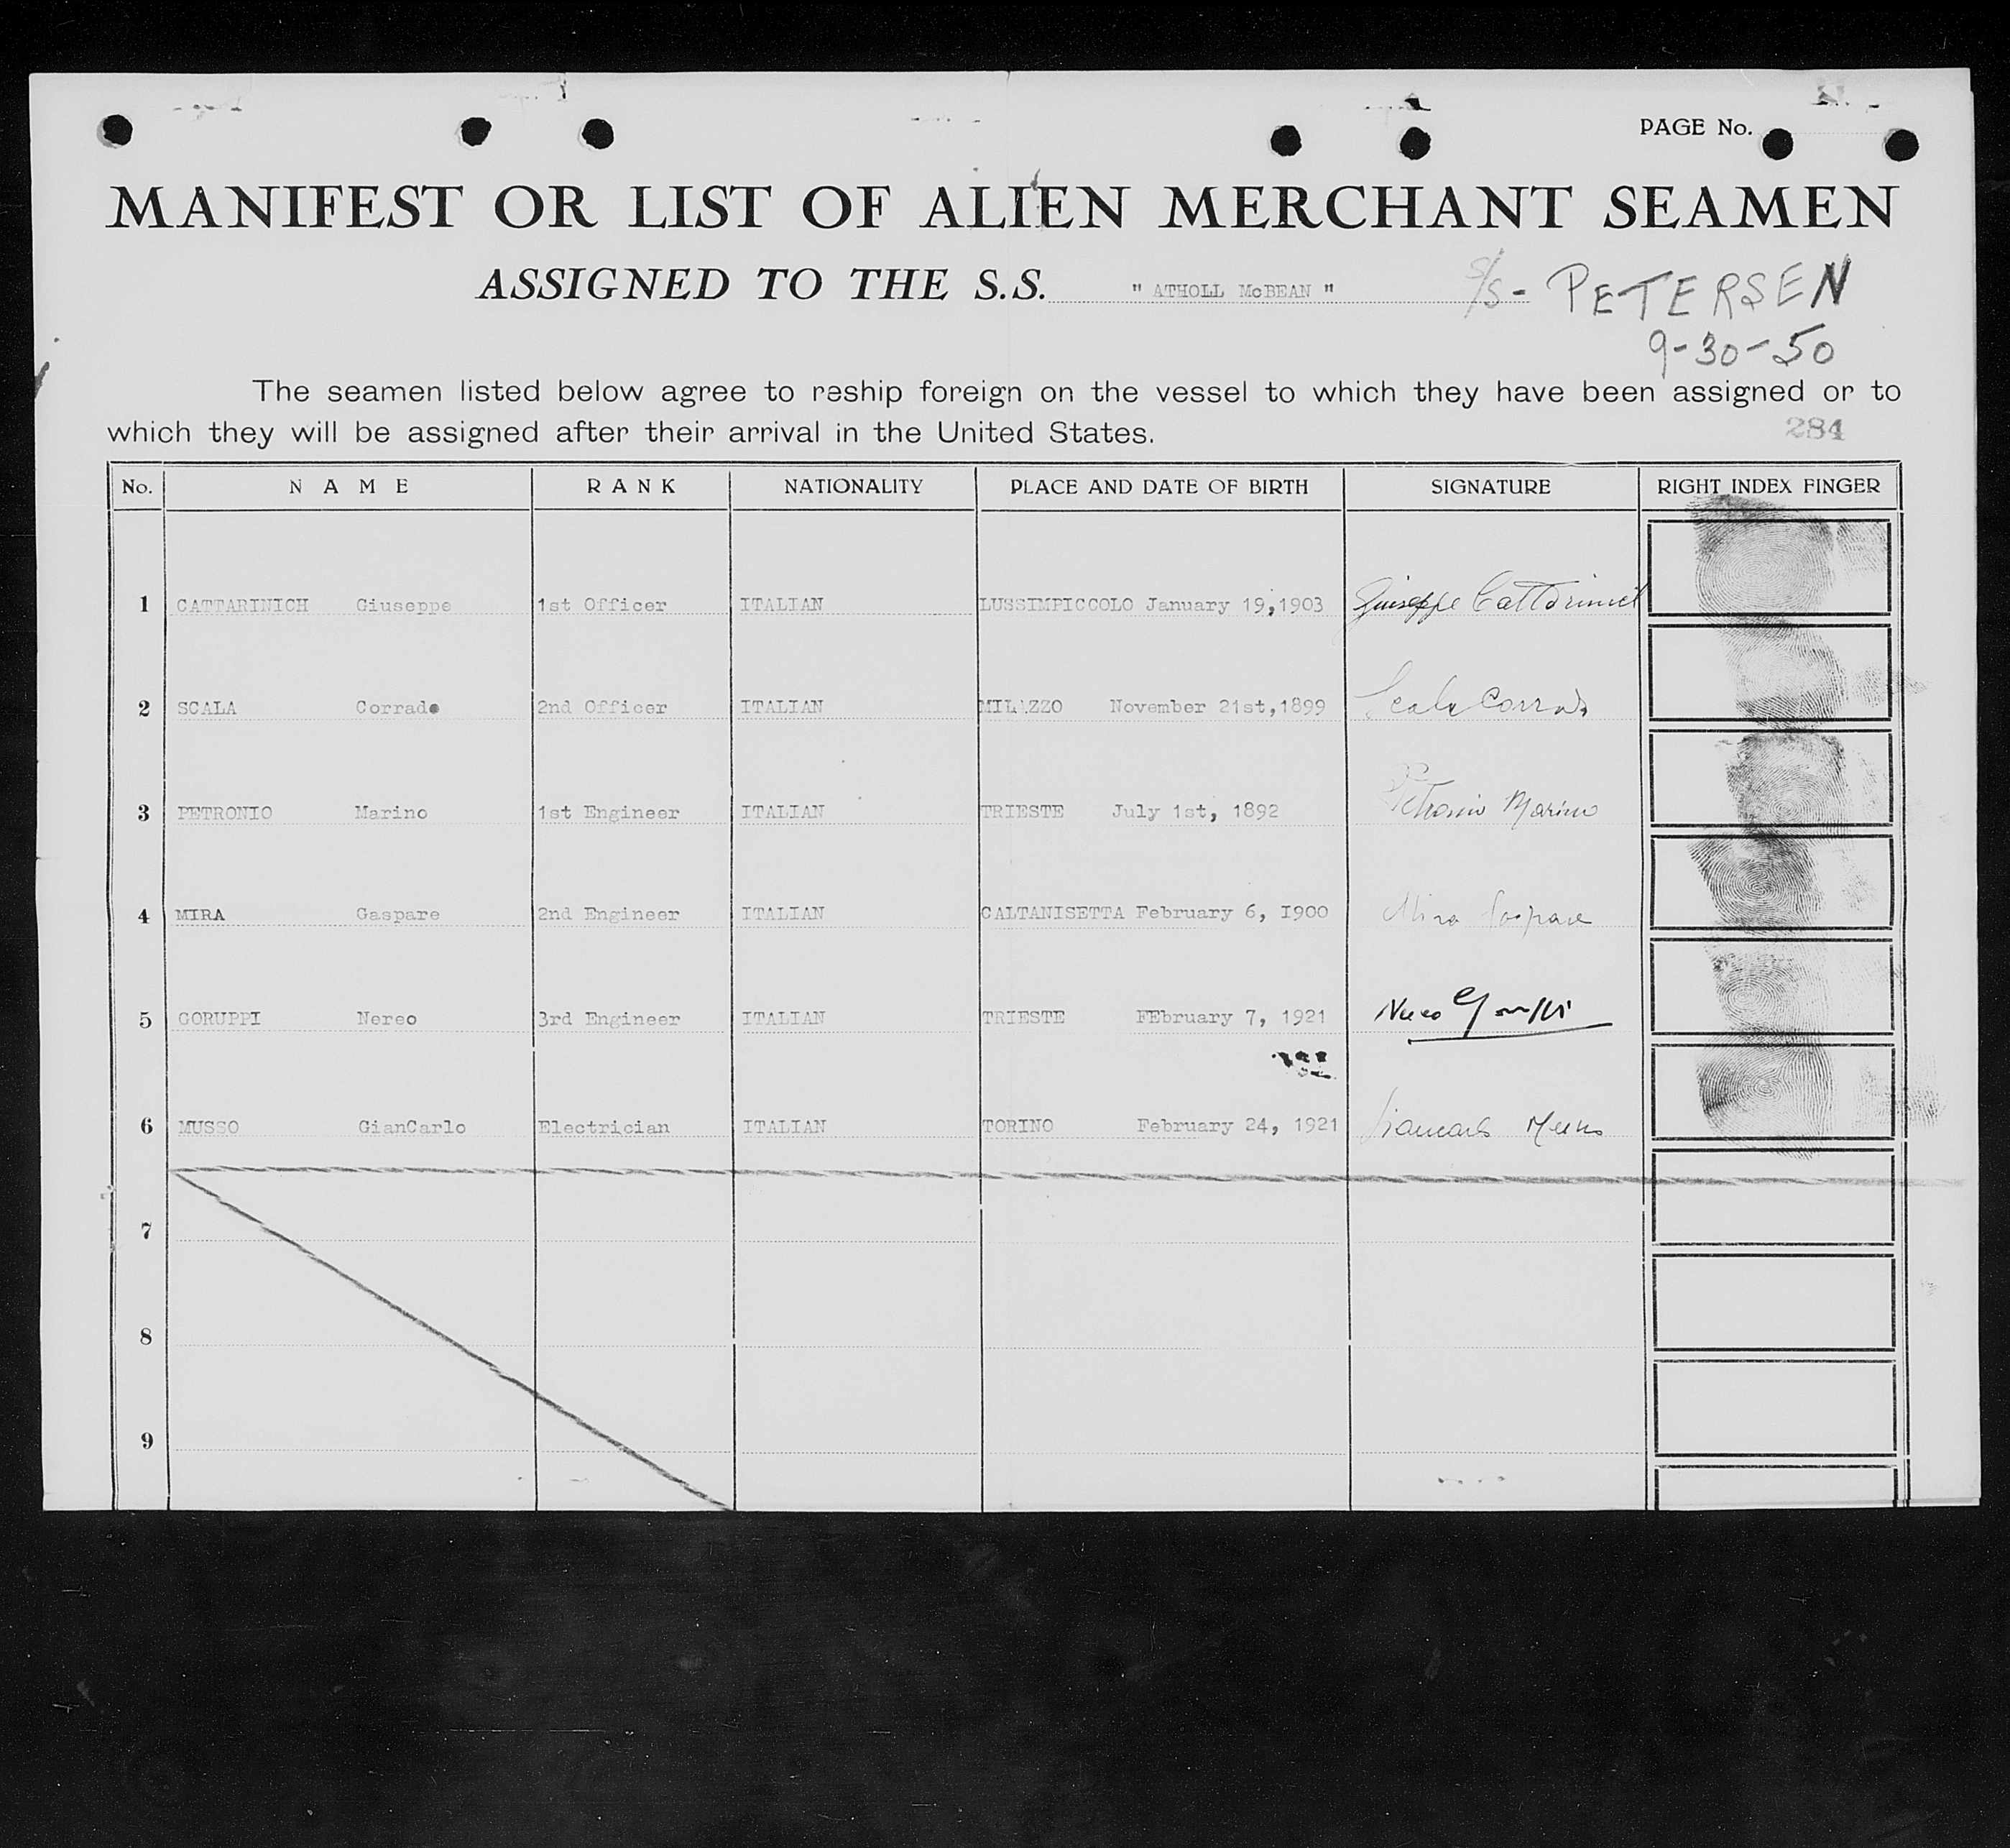 PAGE No.
MANIFEST OR LIST OF ALIEN MERCHANT SEAMEN
ASSIGNED TO THE S.S. " ATHOLL McBEAN " S/S - PETERSEN
9-30-50
The seamen listed below agree to reship foreign on the vessel to which they have been assigned or to
which they will be assigned after their arrival in the United States.
284
No. NAME RANK NATIONALITY PLACE AND DATE OF BIRTH SIGNATURE RIGHT INDEX FINGER
1 CATTARINICH Giuseppe 1st Officer ITALIAN LUSSIMPICCOLO January 19,1903 Giuseppe Cattarinich
2 SCALA Corrado 2nd Officer ITALIAN MILAZZO November 21st,1899 Scala Corrado
3 PETRONIO Marino 1st Engineer ITALIAN TRIESTE July 1st, 1892 Petronio Marino
4 MIRA Gaspare 2nd Engineer ITALIAN CALTANISETTA February 6, I900 Mira Gaspare
5 GORUPPI Nereo 3rd Engineer ITALIAN TRIESTE FEbruary 7, 1921 Nereo Goruppi
6 MUSSO GianCarlo Electrician ITALIAN TORINO February 24, 1921 Giancarlo Musso
7
8
9